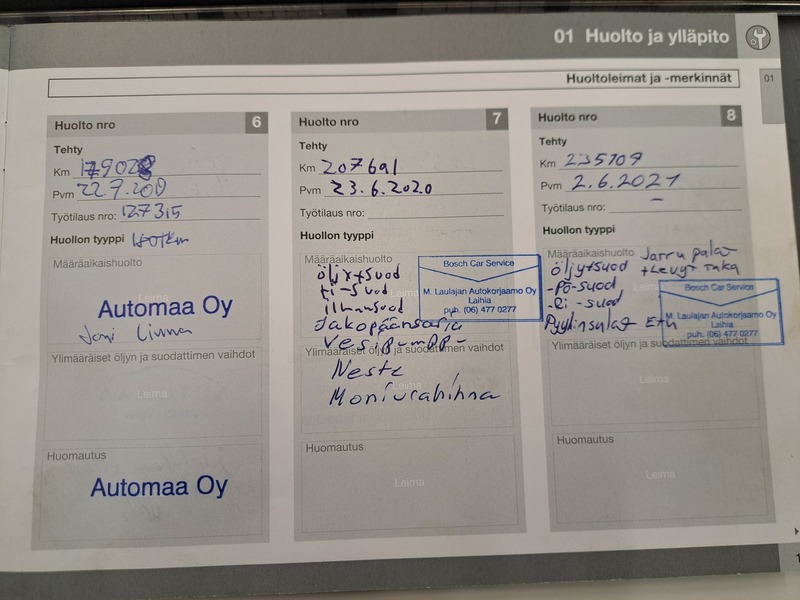 01 Huolto ja ylläpito
Huoltoleimat ja -merkinnät
01
Huolto nro 6
Tehty
Km 179028
Pvm 22.7.200
Työtilaus nro: 127315
Huollon tyyppi
Määräaikaishuolto
Automaa Oy
Ylimääräiset öljyn ja suodattimen vaihdot
Leima
Huomautus
Automaa Oy
Huolto nro 7
Tehty
Km 207691
Pvm 23.6.2020
Työtilaus nro:
Huollon tyyppi
Määräaikaishuolto
öljy+suod
ri-suod
ilmansuod
Jakopäänsarja
Vesipumppu
Neste
Moniurahihna
Bosch Car Service
M. Laulajan Autokorjaamo Oy
Laihia
puh. (06) 477 0277
Ylimääräiset öljyn ja suodattimen vaihdot
Leima
Huomautus
Leima
Huolto nro 8
Tehty
Km 235109
Pvm 2.6.2021
Työtilaus nro: -
Huollon tyyppi
Määräaikaishuolto
Jarru palat
+Levyt taka
öljy+suod
-Pö-suod
-Ri-suod
Pyyhinsulat Etu
Bosch Car Service
M. Laulajan Autokorjaamo Oy
Laihia
puh. (06) 477 0277
Ylimääräiset öljyn ja suodattimen vaihdot
Leima
Huomautus
Leima